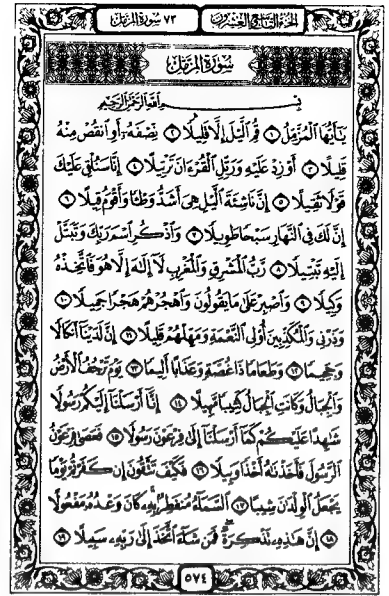 الجزء التاسع والعشرون ٧٣ سورة المزمل
سورة المزمل
بسم الله الرحمن الرحيم
يَٰٓأَيُّهَا ٱلۡمُزَّمِّلُ ١ قُمِ ٱلَّيۡلَ إِلَّا قَلِيلٗا ٢ نِّصۡفَهُۥٓ أَوِ ٱنقُصۡ مِنۡهُ
قَلِيلًا ٣ أَوۡ زِدۡ عَلَيۡهِ وَرَتِّلِ ٱلۡقُرۡءَانَ تَرۡتِيلًا ٤ إِنَّا سَنُلۡقِي عَلَيۡكَ
قَوۡلٗا ثَقِيلًا ٥ إِنَّ نَاشِئَةَ ٱلَّيۡلِ هِيَ أَشَدُّ وَطۡـٔٗا وَأَقۡوَمُ قِيلًا ٦
إِنَّ لَكَ فِي ٱلنَّهَارِ سَبۡحٗا طَوِيلٗا ٧ وَٱذۡكُرِ ٱسۡمَ رَبِّكَ وَتَبَتَّلۡ
إِلَيۡهِ تَبۡتِيلٗا ٨ رَّبُّ ٱلۡمَشۡرِقِ وَٱلۡمَغۡرِبِ لَآ إِلَٰهَ إِلَّا هُوَ فَٱتَّخِذۡهُ
وَكِيلٗا ٩ وَٱصۡبِرۡ عَلَىٰ مَا يَقُولُونَ وَٱهۡجُرۡهُمۡ هَجۡرٗا جَمِيلٗا ١٠
وَذَرۡنِي وَٱلۡمُكَذِّبِينَ أُوْلِي ٱلنَّعۡمَةِ وَمَهِّلۡهُمۡ قَلِيلًا ١١ إِنَّ لَدَيۡنَآ أَنكَالٗا
وَجَحِيمٗا ١٢ وَطَعَامٗا ذَا غُصَّةٖ وَعَذَابًا أَلِيمٗا ١٣ يَوۡمَ تَرۡجُفُ ٱلۡأَرۡضُ
وَٱلۡجِبَالُ وَكَانَتِ ٱلۡجِبَالُ كَثِيبٗا مَّهِيلًا ١٤ إِنَّآ أَرۡسَلۡنَآ إِلَيۡكُمۡ رَسُولٗا
شَٰهِدًا عَلَيۡكُمۡ كَمَآ أَرۡسَلۡنَآ إِلَىٰ فِرۡعَوۡنَ رَسُولٗا ١٥ فَعَصَىٰ فِرۡعَوۡنُ
ٱلرَّسُولَ فَأَخَذۡنَٰهُ أَخۡذٗا وَبِيلٗا ١٦ فَكَيۡفَ تَتَّقُونَ إِن كَفَرۡتُمۡ يَوۡمٗا
يَجۡعَلُ ٱلۡوِلۡدَٰنَ شِيبًا ١٧ ٱلسَّمَآءُ مُنفَطِرُۢ بِهِۦۚ كَانَ وَعۡدُهُۥ مَفۡعُولًا
١٨ إِنَّ هَٰذِهِۦ تَذۡكِرَةٞۖ فَمَن شَآءَ ٱتَّخَذَ إِلَىٰ رَبِّهِۦ سَبِيلًا ١٩
٥٧٤